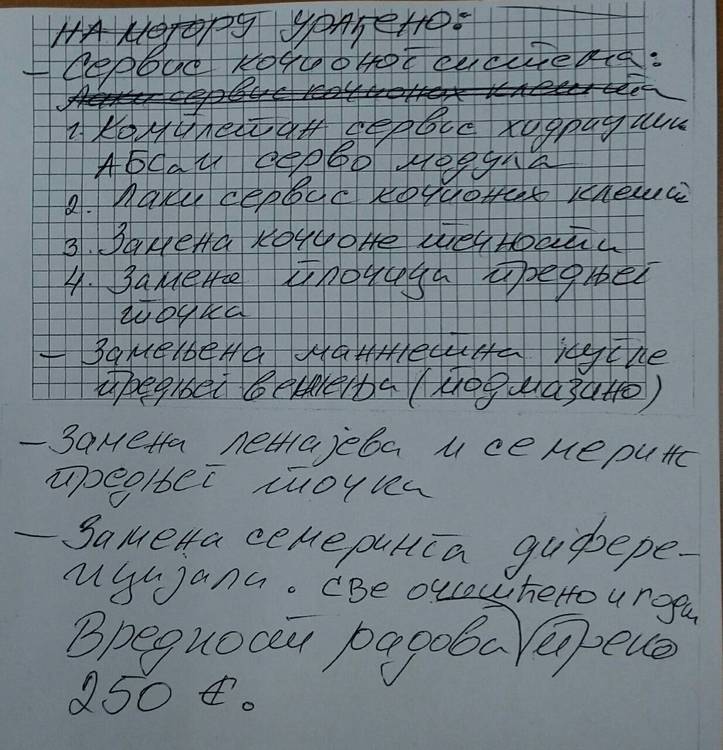 НА МОТОРУ УРАЂЕНО:
- Сервис кочионог система:
Лаки сервис кочионих клешта
1. Комплетан сервис хидраулик
АБСа и серво модула
2. Лаки сервис кочионих клешт
3. Замена кочионе течности
4. Замена плочица предњег
точка
- Замењена манжетна кугле
предњег вешења (подмазано)
- Замена лежајева и семеринг
предњег точка
- Замена семеринга дифере-
нцијала. све очишћено и
Вредност радова преко
250 €.